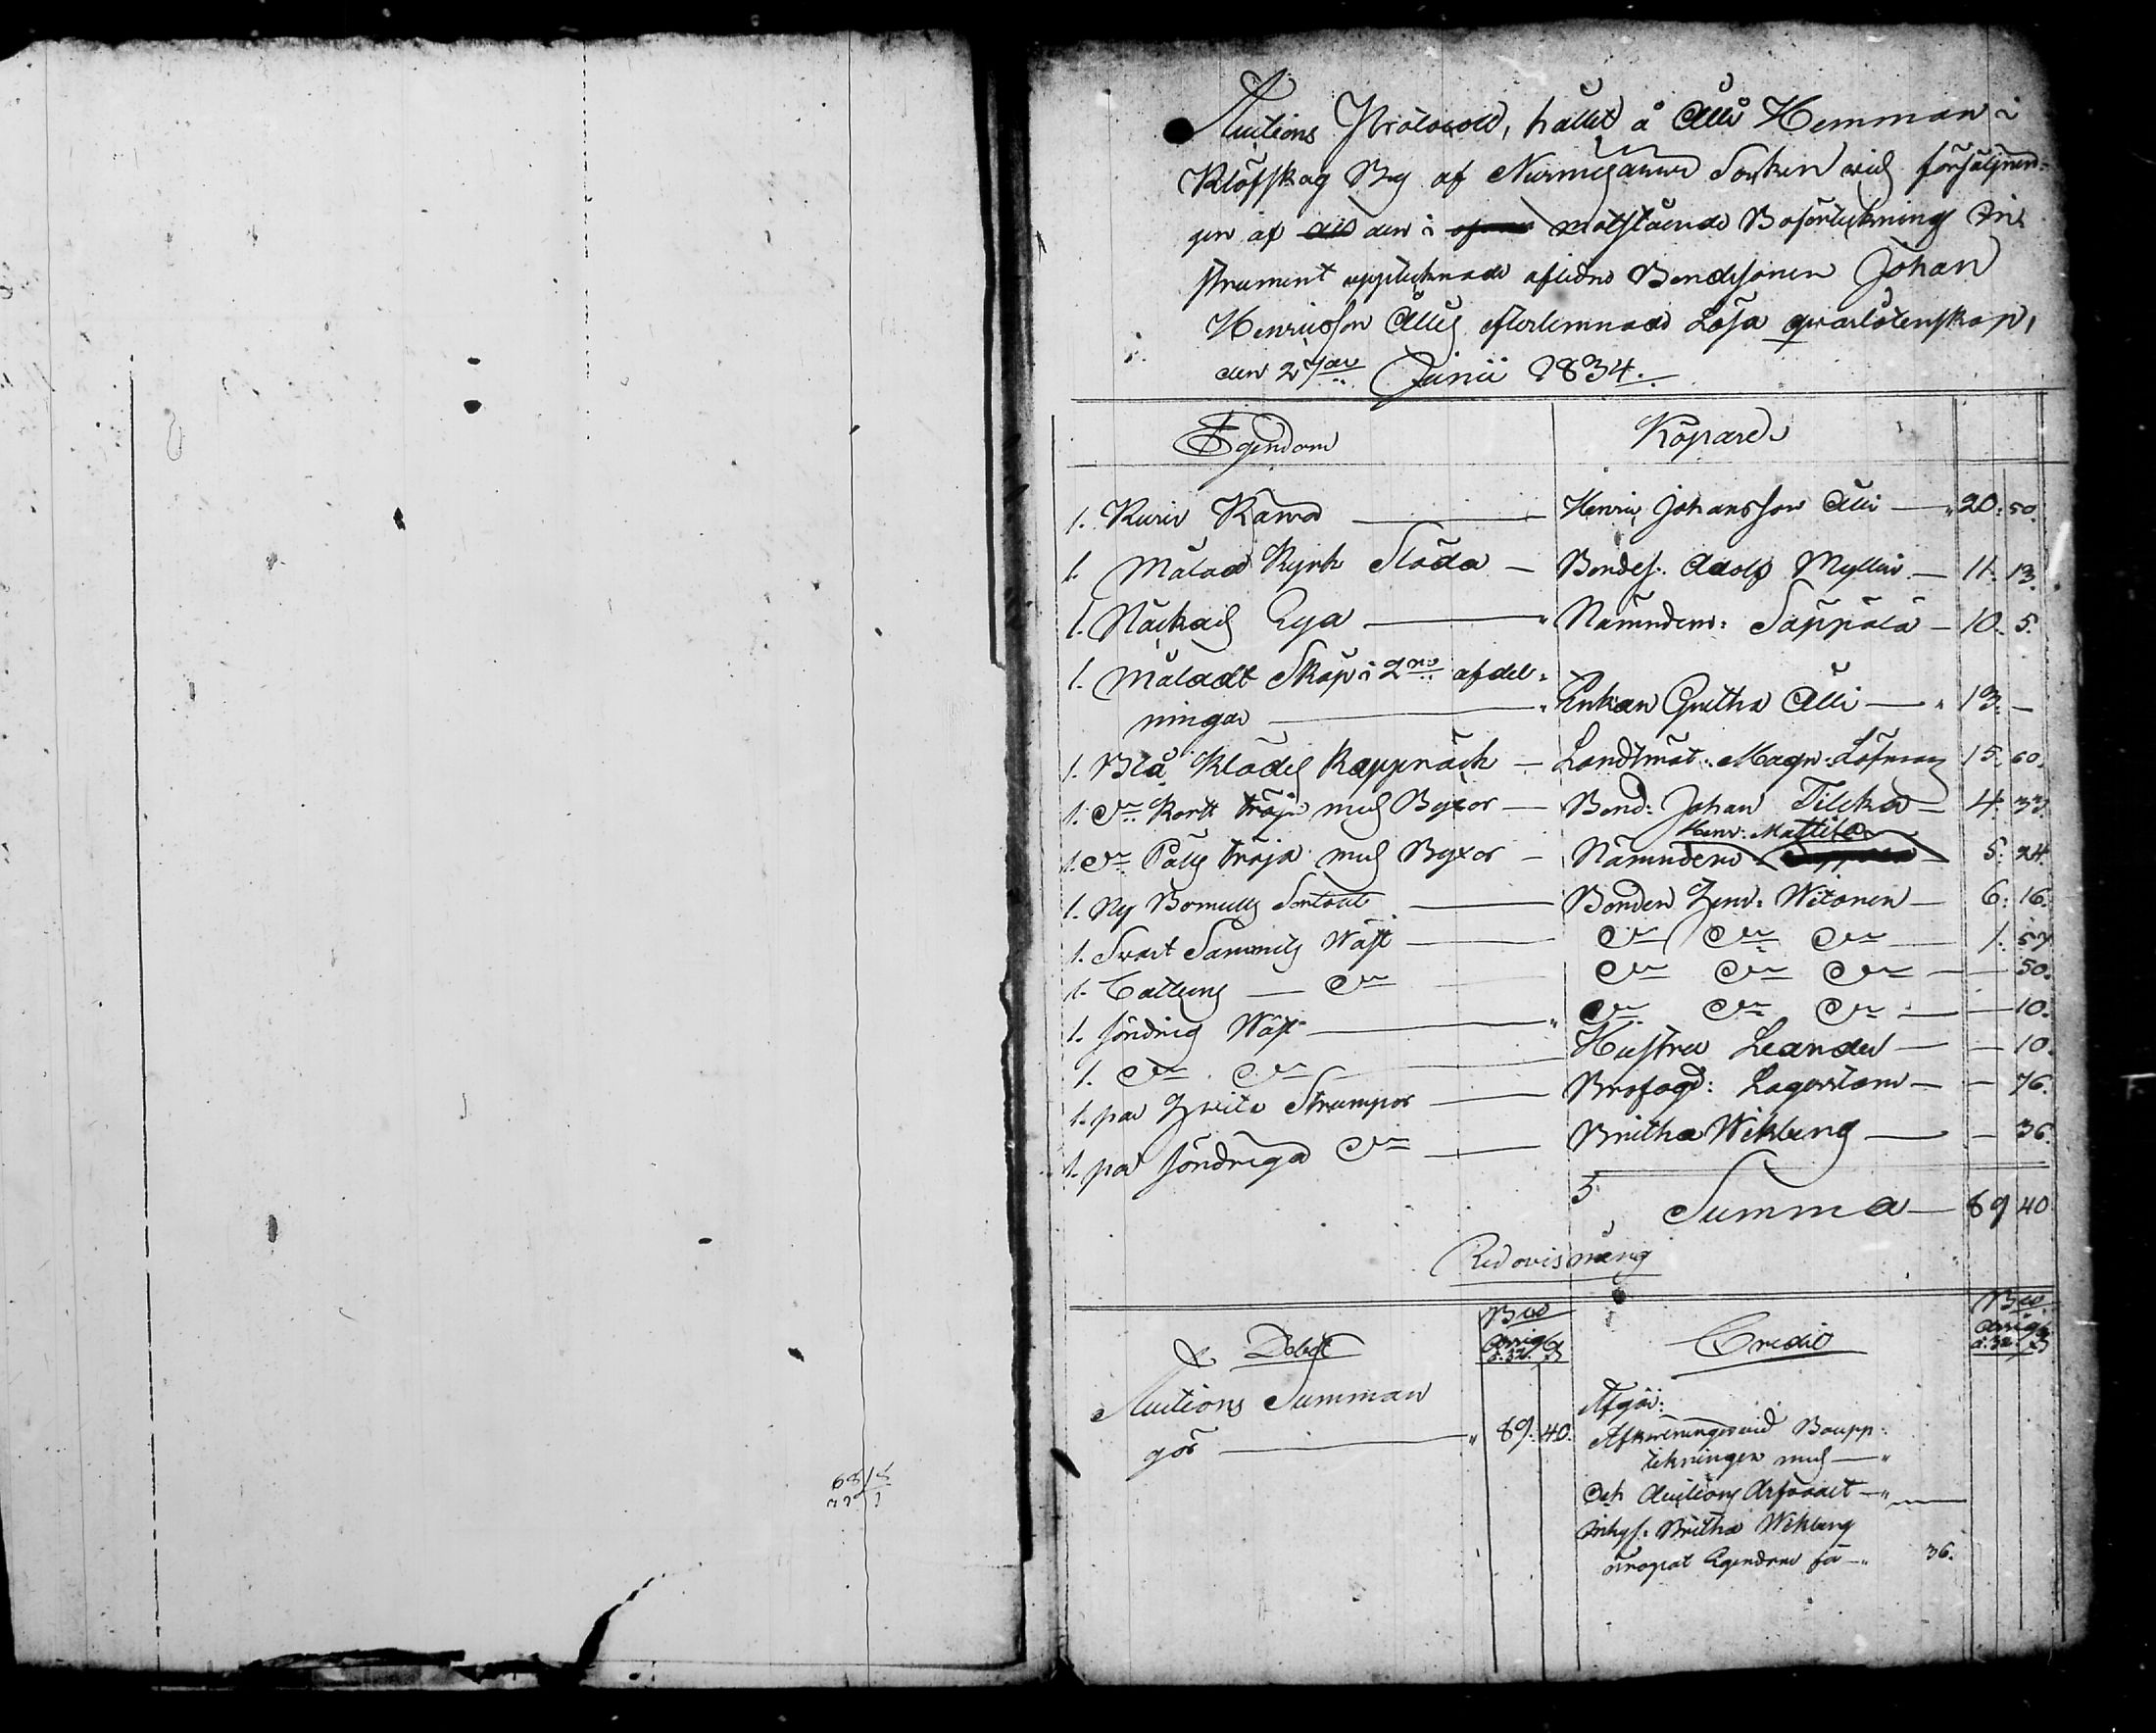 Auctions Protocoll, hållit å Alli Hemman i
Klöfskog By af Nurmijärvi Sockn vid försäljnin-
gen af den i motstående Boförteckning In-
strument upptecknade aflidne Bondesonen Johan
Henricsson Allis efterlemnade Lösa qvarlåtenskap,
den 27de Junii 1834.
Egendom Köpare
1. Henric Johansson Alli 20. 50.
1. Målad Kyrk Släda Bondes. Adolf Mylläri 11. 13.
1. Rya Nämndem: Säppälä 10. 5.
1. Måladt Skåp i 2ne afdel-
ningar Enkan Gretha Alli 13. —
1. Blå Klädes Kappråck Landtmät: Magn: Löfman 15. 60.
1. Do Kort Tröja med Byxor Bond: Johan Tilcka 4. 33.
Henr: Mattila
1. Do Tröja med Byxor Nämndem 5. 24.
1. Ny Bomulls Sortout Bonden Henr: 6. 16.
1. Svart Sammets Wäst Do Do Do 1. 57
1. Cattuns Do Do Do Do 50.
1. söndrig Wäst Do Do Do 10.
1. Do Do Hustru Leander 10.
1. par Hvita Strumpor Brofogd: Lagerstam 76.
1. par söndriga Do Britha Wiklung 36.
Summa 89 40
Redovisning
Debet Bco Credit Bco
Auctions Summan
gör 89. 40.
Afgår:
vid Boupp-
tekningen med
Och Auctions Arfvodet
Inhys: Britha Wiklung
inropat Egendom för 36.